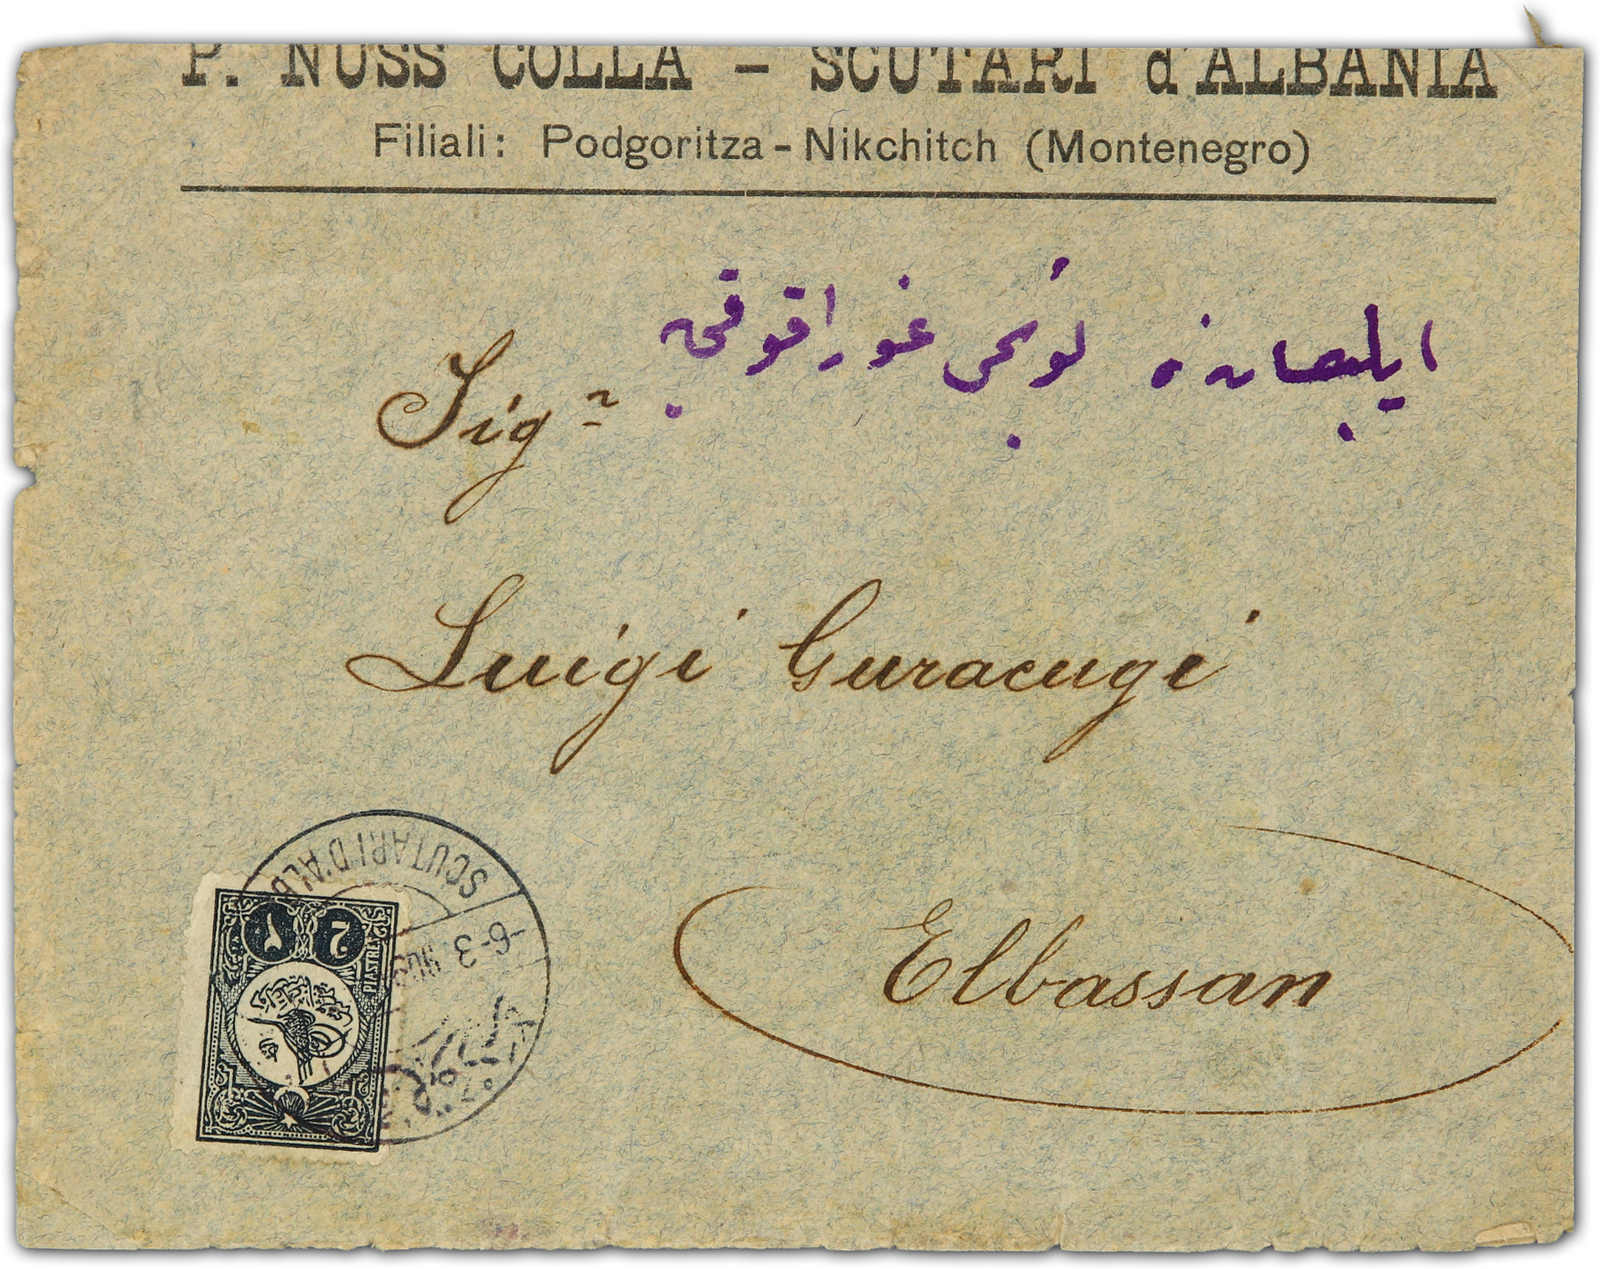 P. NUSS COLLA – SCUTARI d'ALBANIA
Filiali: Podgoritza - Nikchitch (Montenegro)
ايلبصانده
Sigʳ
Luigi Guracugi
Elbassan
SCUTARI D'ALB
-6-3
2 ٢
PIASTRES